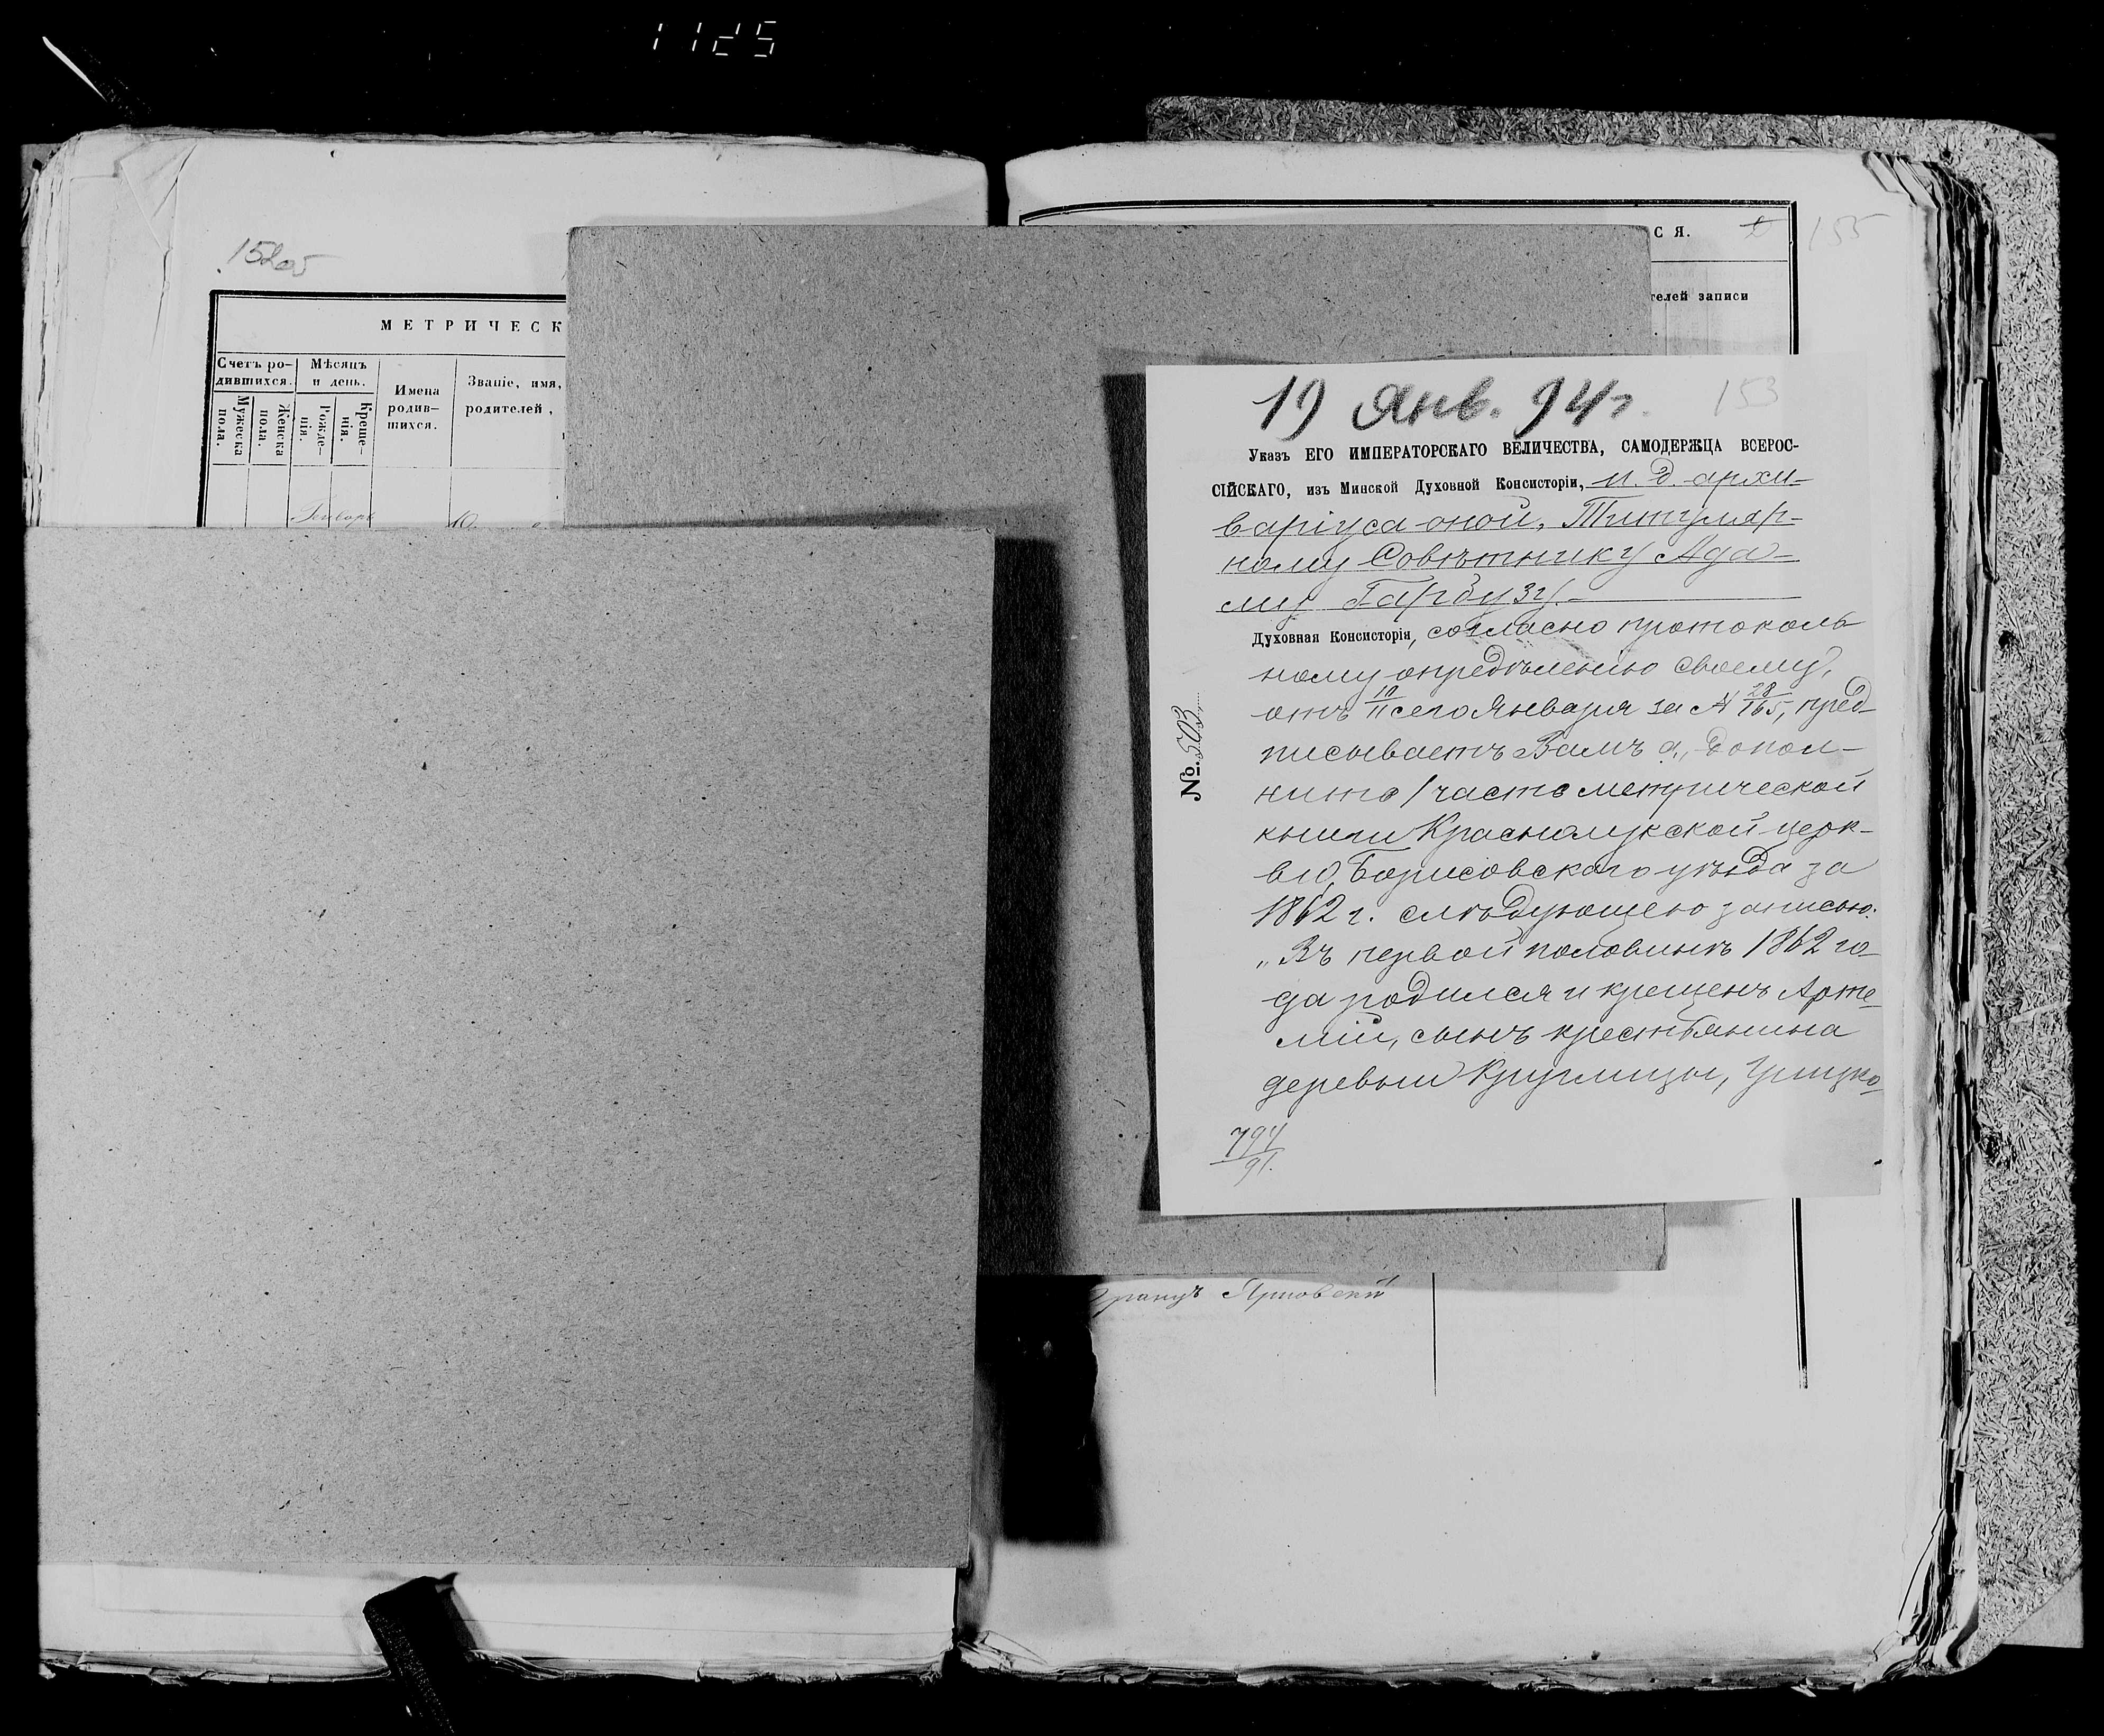 1125
152об
МЕТРИЧЕСК
Счетъ ро-
дившихся.
Мѣсяцъ
и день.
Мужеска
пола.
Женска
пола.
Рожде-
нія.
Креще-
нія.
Имена
родив-
шихся.
Званіе, имя,
родителей,
Генварь
10.
СЯ.
155
телей записи
19 Янв. 94 г.
153
Указъ ЕГО ИМПЕРАТОРСКАГО ВЕЛИЧЕСТВА, САМОДЕРЖЦА ВСЕРОС-
СІЙСКАГО, изъ Минской Духовной Консисторіи, и. д. архи-
варіуса оной, Титуляр-
ному Совѣтнику Ада-
му Гарбузу.
Духовная Консисторія, согласно протоколь
ному опредѣленію своему,
отъ 10/11 сего Января за № 28/165, пред-
писываетъ Вамъ а, допол-
нить 1 часть метрической
книги Краснолукской церк-
ви, Борисовскаго уѣзда за
1862 г. слѣдующею записью:
„Въ первой половинѣ 1862 го-
да родился и крещенъ Арте-
мій, сынъ крестьянина
деревни Круглицы,
№ 503
794/91.